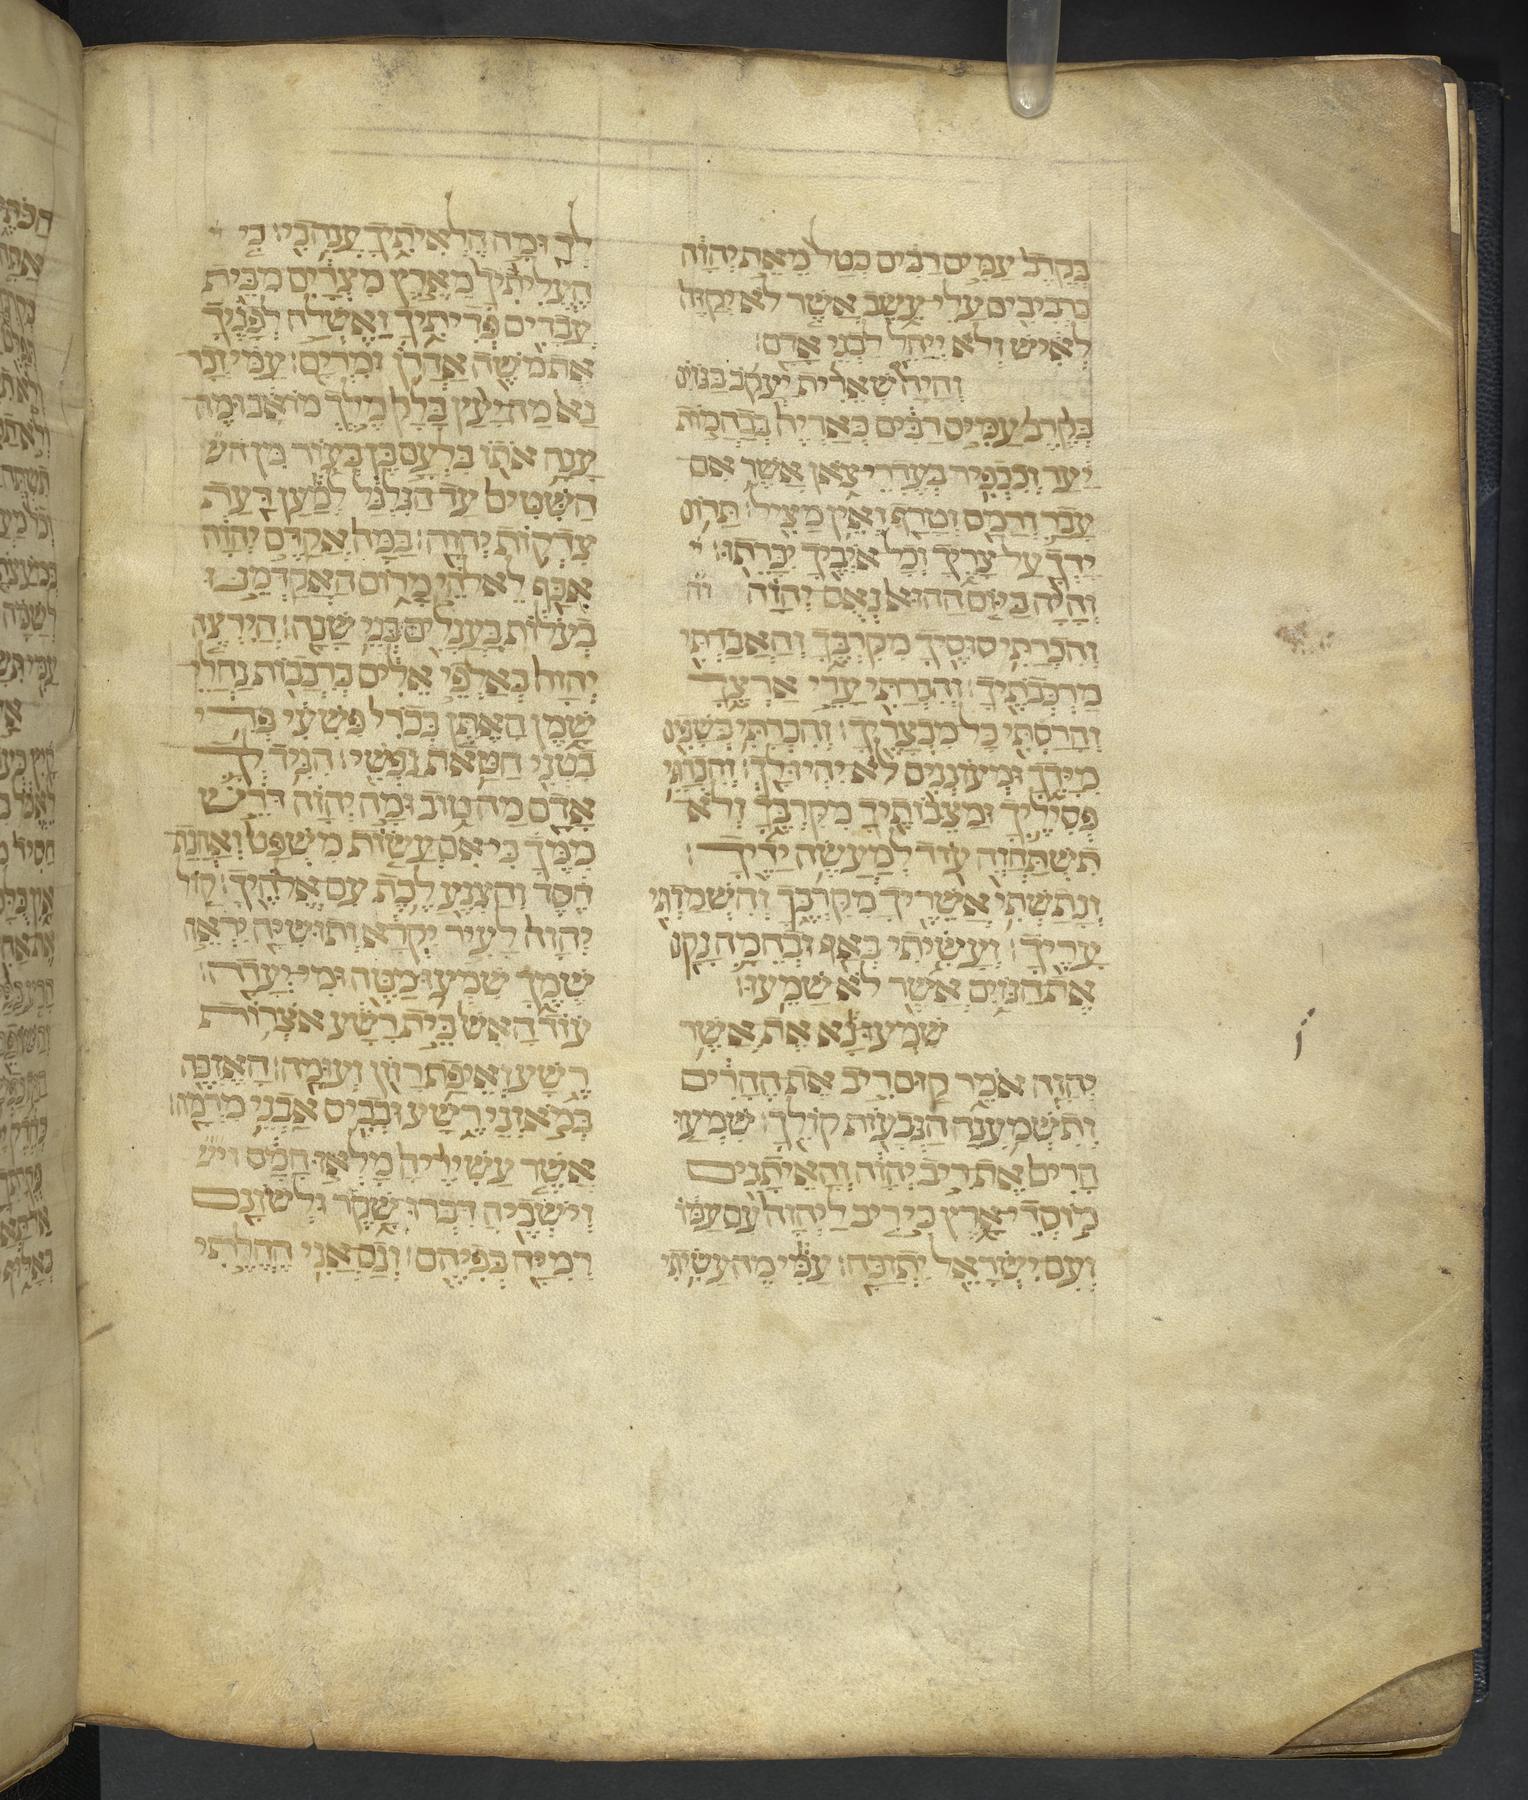 בְּקֶרֶב עַמִּים רַבִּים כְּטַל מֵאֵת יְהוָה
כִּרְבִיבִים עֲלֵי עֵשֶׂב אֲשֶׁר לֹא יְקַוֶּה
לְאִישׁ וְלֹא יְיַחֵל לִבְנֵי אָדָם׃
וְהָיָה שְׁאֵרִית יַעֲקֹב בַּגּוֹיִם
בְּקֶרֶב עַמִּים רַבִּים כְּאַרְיֵה בְּבַהֲמוֹת
יַעַר וְכִכְפִיר בְּעֶדְרֵי צֹאן אֲשֶׁר אִם
עָבַר וְרָמַס וְטָרַף וְאֵין מַצִּיל׃ תָּרוֹם
יָדְךָ עַל צָרֶיךָ וְכָל אֹיְבֶיךָ יִכָּרֵתוּ׃
וְהָיָה בַיּוֹם הַהוּא נְאֻם יְהוָה וה
וְהִכְרַתִּי סוּסֶיךָ מִקִּרְבֶּךָ וְהַאֲבַדְתִּי
מַרְכְּבֹתֶיךָ׃ וְהִכְרַתִּי עָרֵי אַרְצֶךָ
וְהָרַסְתִּי כָּל מִבְצָרֶיךָ׃ וְהִכְרַתִּי כְשָׁפִים
מִיָּדֶךָ וּמְעוֹנְנִים לֹא יִהְיוּ לָךְ׃ וְהִכְרַתִּי
פְסִילֶיךָ וּמַצֵּבוֹתֶיךָ מִקִּרְבֶּךָ וְלֹא
תִשְׁתַּחֲוֶה עוֹד לְמַעֲשֵׂה יָדֶיךָ׃
וְנָתַשְׁתִּי אֲשֵׁרֶיךָ מִקִּרְבֶּךָ וְהִשְׁמַדְתִּי
עָרֶיךָ׃ וְעָשִׂיתִי בְּאַף וּבְחֵמָה נָקָם
אֶת הַגּוֹיִם אֲשֶׁר לֹא שָׁמֵעוּ׃
שִׁמְעוּ נָא אֵת אֲשֶׁר
יְהוָה אֹמֵר קוּם רִיב אֶת הֶהָרִים
וְתִשְׁמַעְנָה הַגְּבָעוֹת קוֹלֶךָ׃ שִׁמְעוּ
הָרִים אֶת רִיב יְהוָה וְהָאֵיתָנִים
מוֹסְדֵי אָרֶץ כִּי רִיב לַיהוָה עִם עַמּוֹ
וְעִם יִשְׂרָאֵל יִתְוַכָּח׃ עַמִּי מֶה עָשִׂיתִי
לְךָ וּמָה הֶלְאֵיתִיךָ עֲנֵה בִי׃ כִּי
הֶעֱלִיתִיךָ מֵאֶרֶץ מִצְרַיִם מִבֵּית
עֲבָדִים פְּדִיתִיךָ וָאֶשְׁלַח לְפָנֶיךָ
אֶת מֹשֶׁה אַהֲרֹן וּמִרְיָם׃ עַמִּי זְכָר
נָא מַה יָּעַץ בָּלָק מֶלֶךְ מוֹאָב וּמֶה
עָנָה אֹתוֹ בִּלְעָם בֶּן בְּעוֹר מִן הש
הַשִּׁטִּים עַד הַגִּלְגָּל לְמַעַן דַּעַת
צִדְקוֹת יְהוָה׃ בַּמָּה אֲקַדֵּם יְהוָה
אִכַּף לֵאלֹהֵי מָרוֹם הַאֲקַדְּמֶנּוּ
בְעוֹלוֹת בַּעֲגָלִים בְּנֵי שָׁנָה׃ הֲיִרְצֶה
יְהוָה בְּאַלְפֵי אֵילִים בְּרִבְבוֹת נַחֲלֵי
שָׁמֶן הַאֶתֵּן בְּכֹרִי פִּשְׁעִי פְּרִי
בִטְנִי חַטַּאת נַפְשִׁי׃ הִגִּיד לְךָ
אָדָם מַה טּוֹב וּמָה יְהוָה דּוֹרֵשׁ
מִמְּךָ כִּי אִם עֲשׂוֹת מִשְׁפָּט וְאַהֲבַת
חֶסֶד וְהַצְנֵעַ לֶכֶת עִם אֱלֹהֶיךָ׃ קוֹל
יְהוָה לָעִיר יִקְרָא וְתוּשִׁיָּה יִרְאֶה
שְׁמֶךָ שִׁמְעוּ מַטֶּה וּמִי יְעָדָהּ׃
עוֹד הַאִשׁ בֵּית רָשָׁע אֹצְרוֹת
רֶשַׁע וְאֵיפַת רָזוֹן זְעוּמָה׃ הַאֶזְכֶּה
בְּמֹאזְנֵי רֶשַׁע וּבְכִיס אַבְנֵי מִרְמָה׃
אֲשֶׁר עֲשִׁירֶיהָ מָלְאוּ חָמָס ויש
וְיֹשְׁבֶיהָ דִּבְּרוּ שָׁקֶר וּלְשׁוֹנָם
רְמִיָּה בְּפִיהֶם׃ וְגַם אֲנִי הֶחֱלֵיתִי